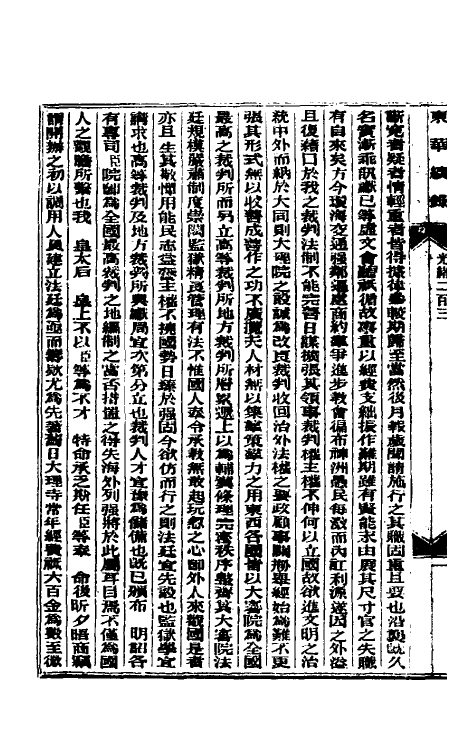 東華續錄 光緒二百三
斷完者疑者情輕重者皆得據律參較期歸至當然後月報歲聞請施行之其職固重且要也沿襲既久
名實漸乖獄讞已等虛文會議祗循故事重以經費支絀振作難期雖有賢能末由展其尺寸官之失職
有自來矣方今環海交通強鄰逼處商約競爭進步教會徧布神洲愚民每激而內訌利源遂因之外溢
且復藉口於我之裁判法制不能完善日謀擴張其領事裁判權主權不伸何以立國故欲進文明之治
統中外而納於大同則大理院之設誠為改良裁判收回治外法權之要政顧事關剏舉經始為難不更
張其形式無以收善成善作之功不廣攬夫人材無以集羣策羣力之用東西各國皆以大審院為全國
最高之裁判所而另立高等裁判所地方裁判所層累遞上以為輔翼條理完密秩序整齊其大審院法
廷規模嚴肅制度崇閎監獄精良管理有法不惟國人奉令承教無敢起玩忽之心即外人來觀國是者
亦且生其敬憚用能民志益張主權不撓國勢日臻於强固今欲仿而行之則法廷宜先設也監獄學宜
講求也高等裁判及地方裁判所與讞局宜次第分立也裁判人才宜豫為儲備也既已頒布 明詔各
有專司 臣院卽為全國最高裁判之地編制之當否措置之得失海外列强將於此屬耳目焉不僅為國
人之觀瞻所繫也我 皇太后 皇上不以 臣等為不才 特命承乏斯任 臣等奉 命後昕夕晤商竊
謂開辦之初以調用人員建立法廷為亟而籌款尤為先著舊日大理寺常年經費祗六百金為數至微